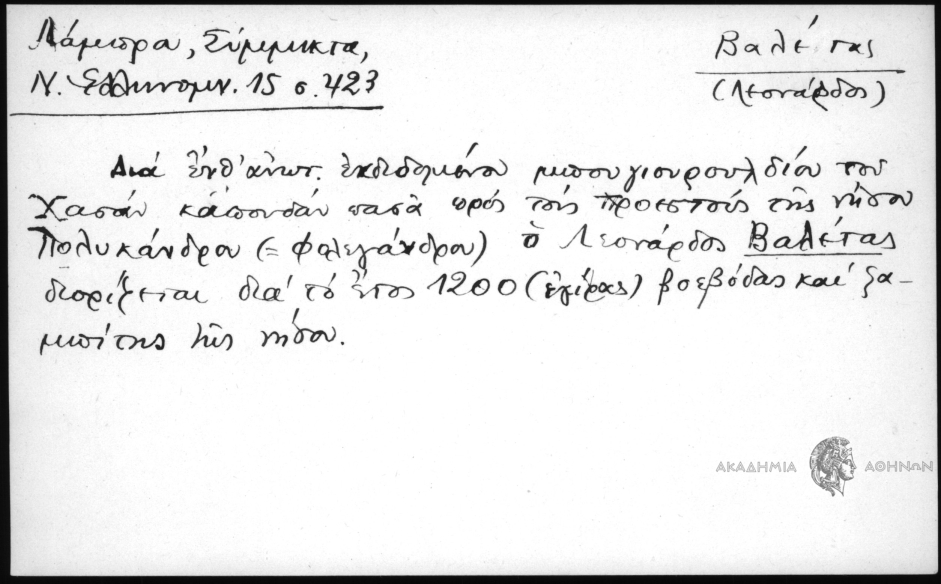 Λάμπρα, Σύμμικτα,
Ν. Ἑλληνομν. 15 σ. 423
Βαλέτας
(Λεονάρδος)
Διά ἐνθ' ἀνωτ. ἐκδιδομένου μπουγιουρουλδίου τοῦ
Χασάν καπουδάν πασᾶ πρός τούς προεστούς τῆς νήσου
Πολυκάνδρου (= Φολεγάνδρου) ὁ Λεονάρδος Βαλέτας
διορίζεται διά τό ἔτος 1200 (ἐγίρας) βοεβόδας καί ζα-
μπίτης τῆς νήσου.
ΑΚΑΔΗΜΙΑ ΑΘΗΝΩΝ